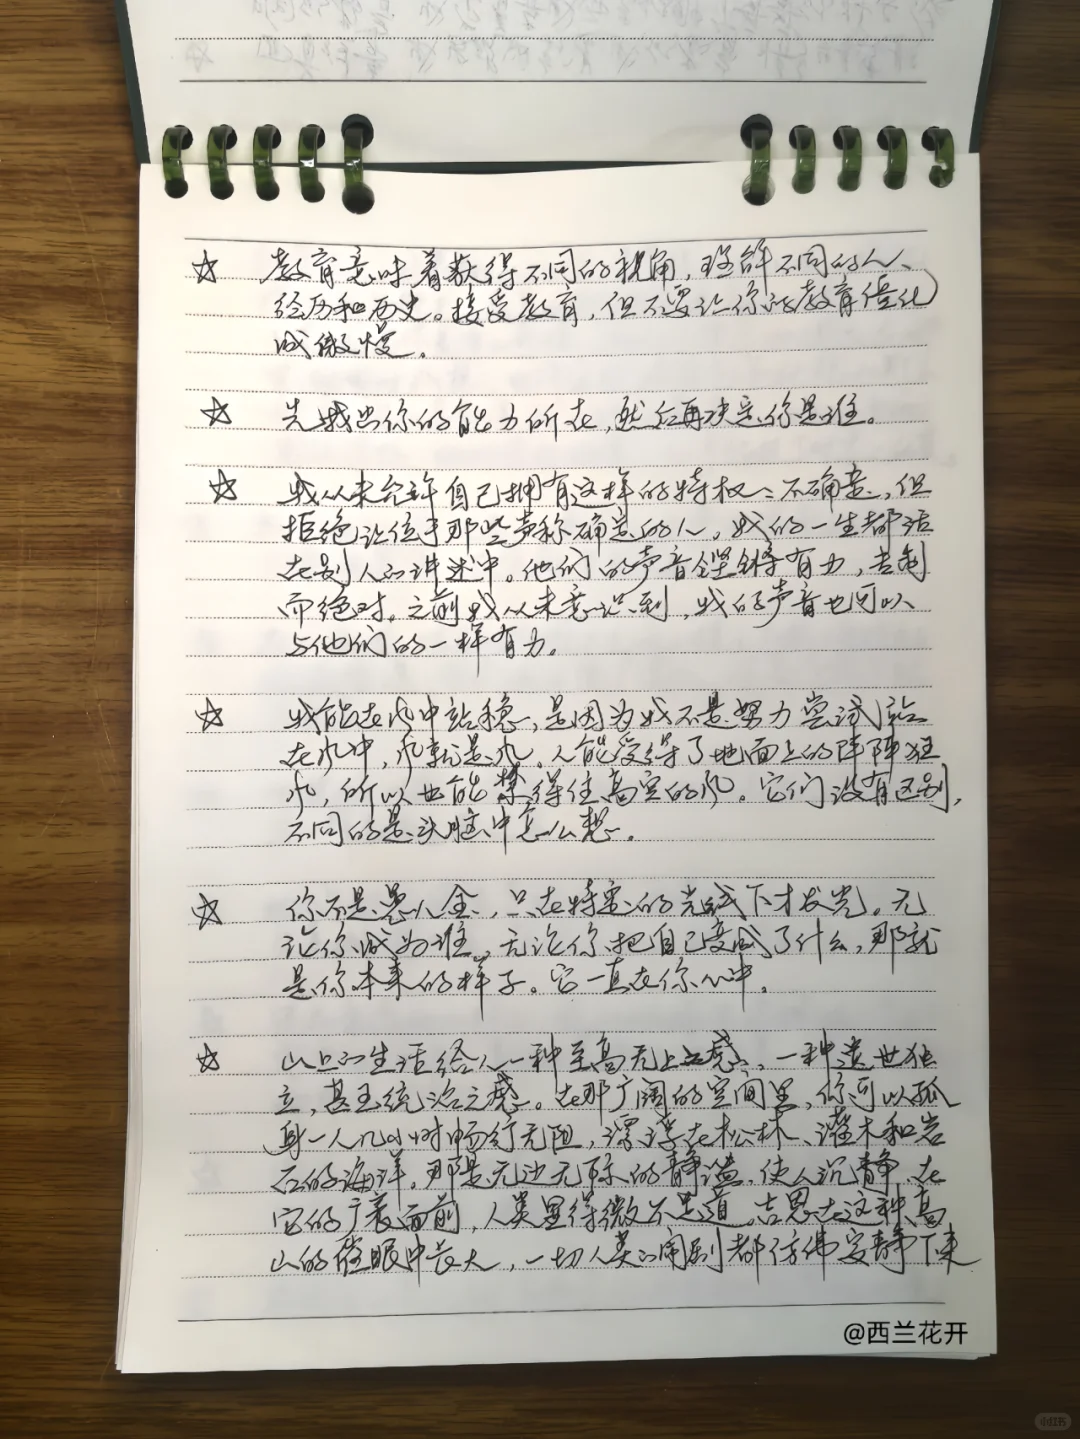 ☆ 教育意味着获得不同的视角，理解不同的人、
经历和历史。接受教育，但不要让你的教育僵化
成傲慢。
☆ 先找出你的能力所在，然后再决定你是谁。
☆ 我从未允许自己拥有这样的特权：不确定，但
拒绝让位于那些声称确定的人。我的一生都活
在别人的讲述中。他们的声音铿锵有力，专制
而绝对。之前我从未意识到，我的声音也可以
与他们的一样有力。
☆ 我能在风中站稳，是因为我不是努力尝试站
在风中，风就是风。人能受得了地面上的阵阵狂
风，所以也能禁得住高空的风。它们没有区别，
不同的是头脑中怎么想。
☆ 你不是愚人金，只在特定的光线下才发光。无
论你成为谁，无论你把自己变成了什么，那就
是你本来的样子。它一直在你心中。
☆ 山上的生活给人一种至高无上之感，一种遗世独
立，甚至统治之感。在那广阔的空间里，你可以孤
身一人几小时畅行无阻，漂浮在松林、灌木和岩
石的海洋。那是无边无际的静谧，使人沉静，在
它的广袤面前，人类显得微不足道。吉恩在这种高
山的催眠中长大，一切人类的闹剧都仿佛安静下来
@西兰花开
小红书